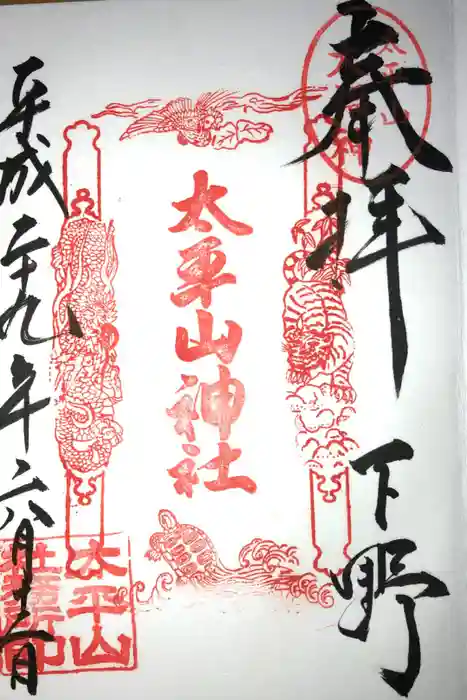 奉拝 下野
太平山神社
平成二十九年六月十一日
太平山